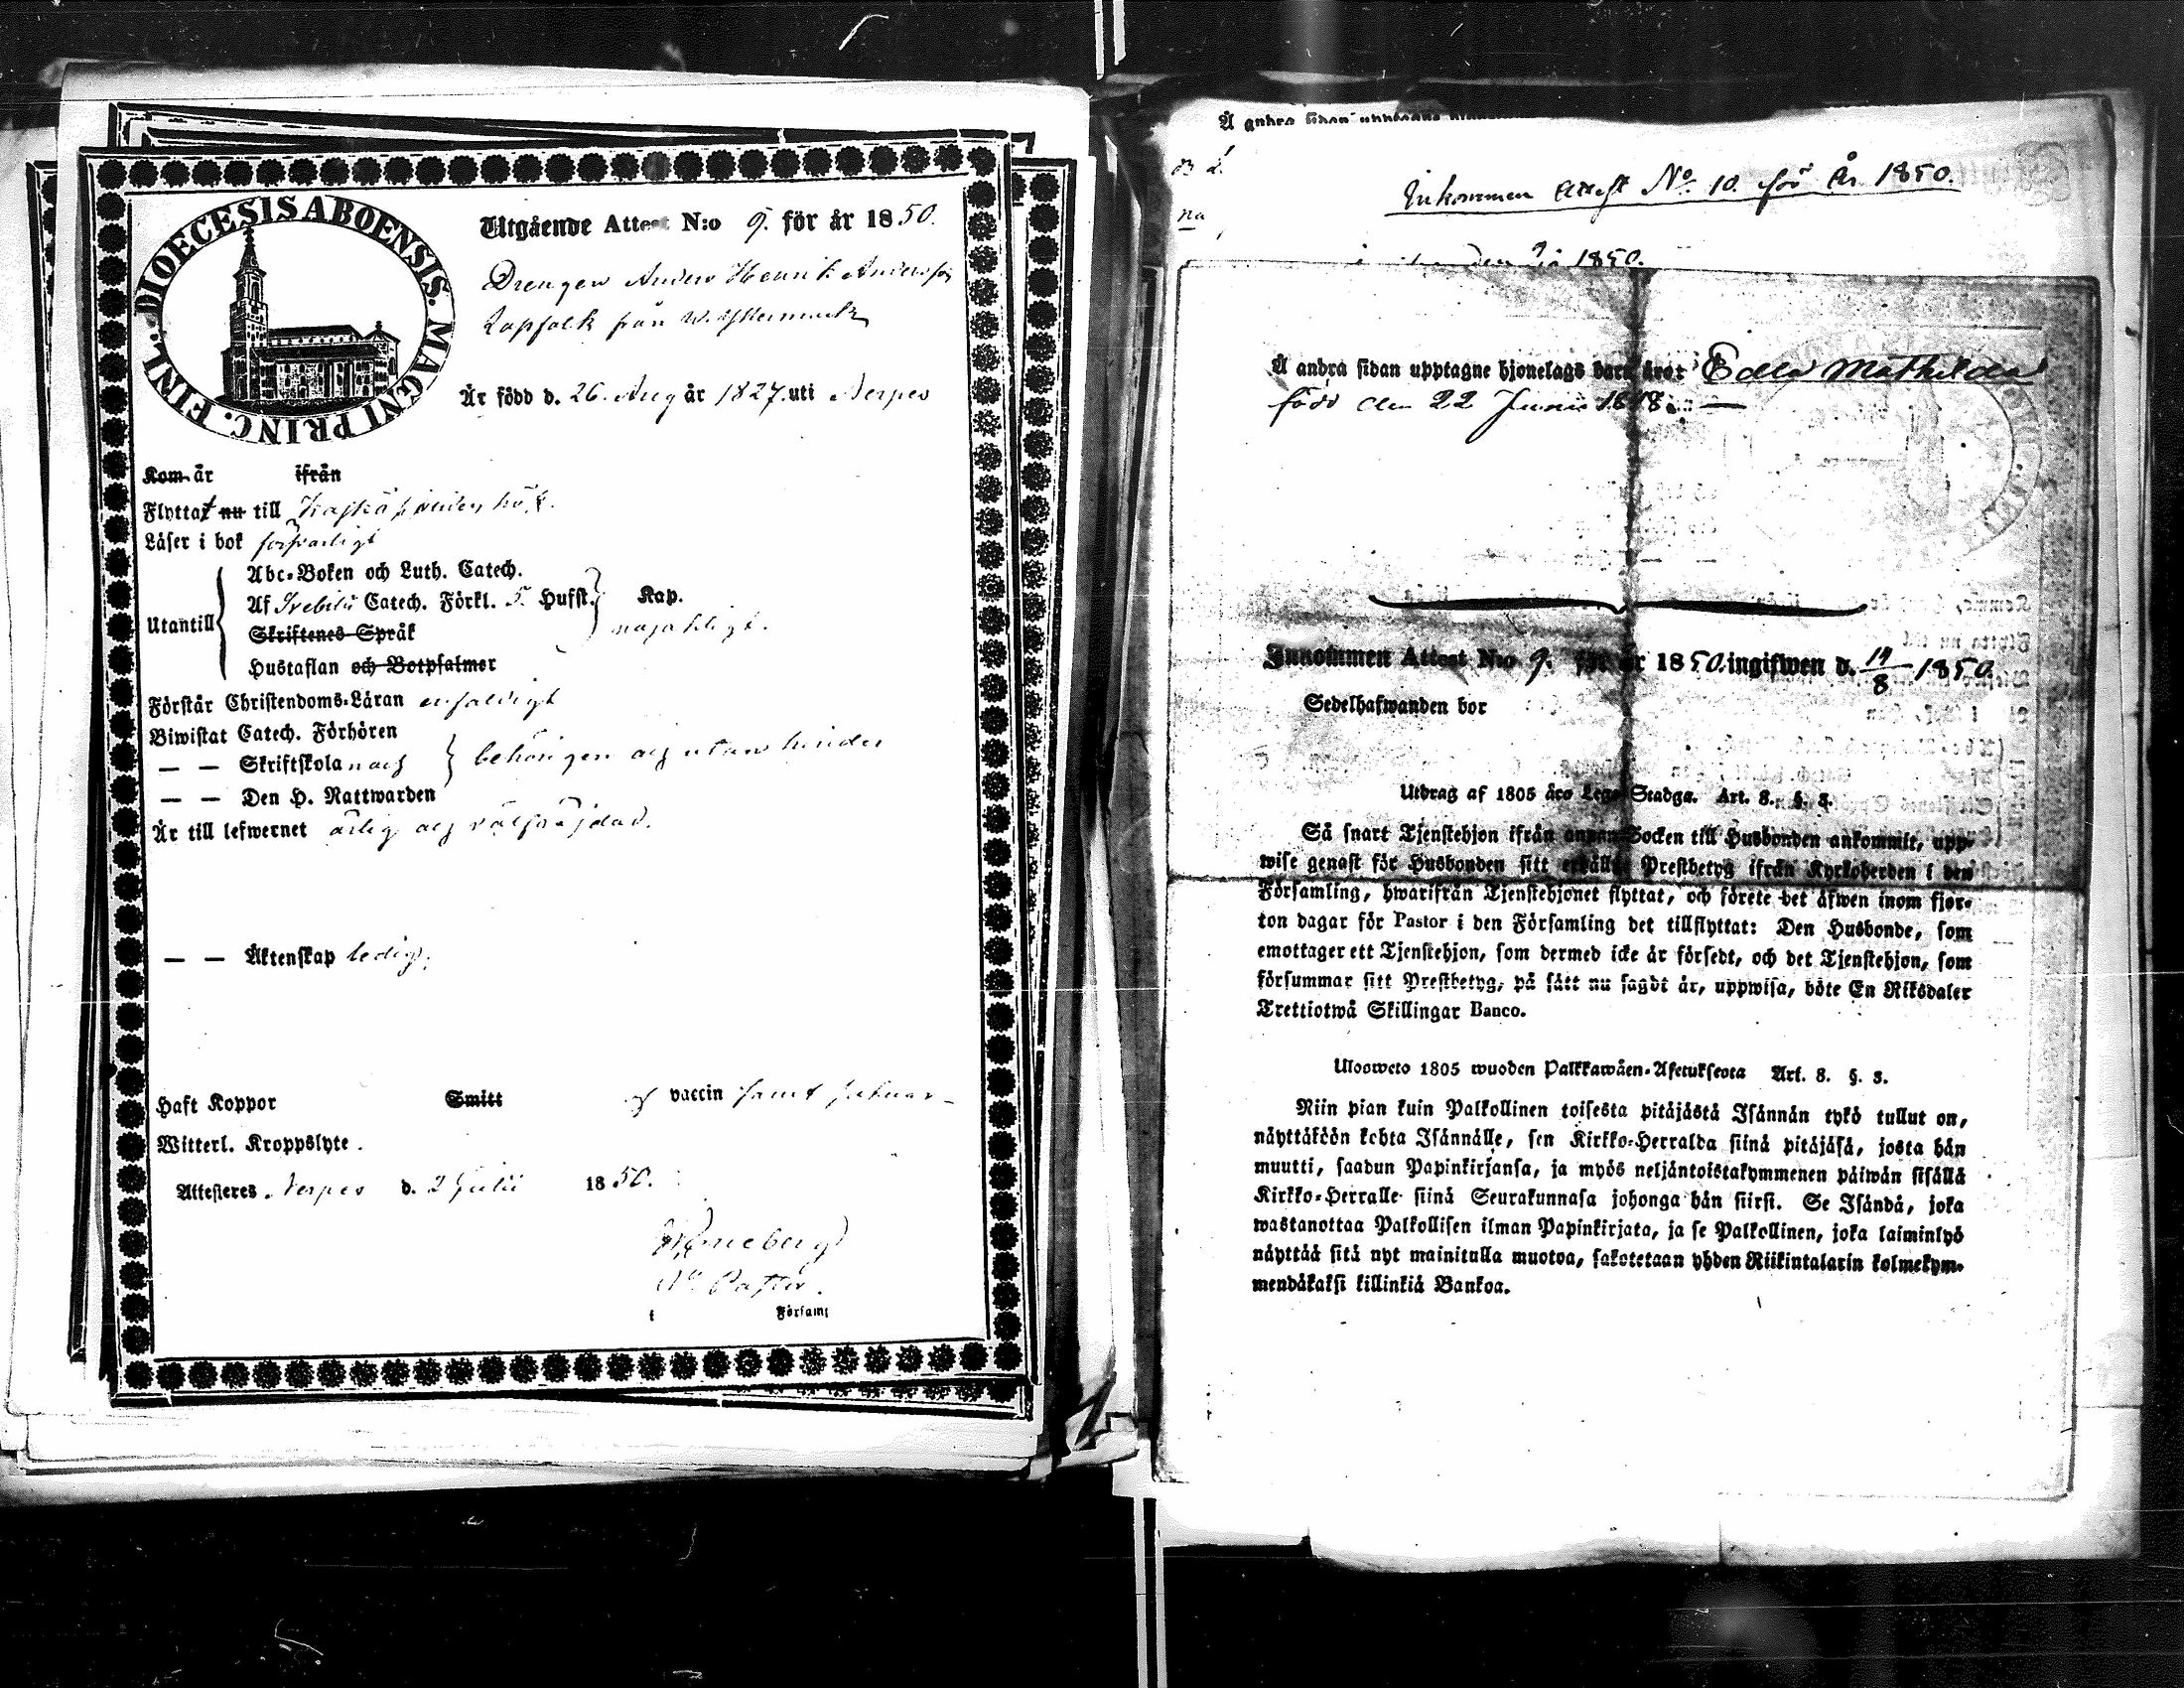 DIOECESIS ABOENSIS. MAGNI PRINC. FINL.
Utgående Attest N:o 9. för år 1850.
Drengen Anders Henrik Andersson
Lapfolk från W. Yttermark
Är född d. 26. Aug år 1827. uti Nerpes
Kom år ifrån
Flyttat nu till
Läser i bok försvarligt
Abc-Boken och Luth. Catech.
Af Svebilii Catech. Förkl. 5. Hufst. Kap.
Utantill
Skriftenes Språk
Hustaflan och Botpsalmer
Förstår Christendoms-Läran enfaldigt
Biwistat Catech. Förhören
— — Skriftskolan och behörigen och utan hinder
— — Den H. Nattwarden
Är till lefwernet ärlig och välfräjdad.
— — Äktenskap ledig.
Haft Koppor Smitt af vaccin samt
Witterl. Kroppslyte.
Attesteres. Nerpes d. 2 Julii 1850.
Pastor.
i Församl
Å andra sidan upptagne
Inkommen attest No. 10. för År 1850.
1850.
Å andra sidan upptagne hjonelags barn äro: Edla Mathilda
född den 22 Junii 1848. —
Innommen Attest N:o 9. för år 1850. ingifwen d. 14/8 1850.
Sedelhafwanden bor
Utdrag af 1805 års Lego-Stadga. Art. 8. §. 3.
Så snart Tjenstehjon ifrån annan Socken till Husbonden ankommit, upp-
wise genast för Husbonden sitt erhållne Prestbetyg ifrån Kyrkoherden i den
Församling, hwarifrån Tjenstehjonet flyttat, och förete det äfwen inom fjor-
ton dagar för Pastor i den Församling det tillflyttat: Den Husbonde, som
emottager ett Tjenstehjon, som dermed icke är försedt, och det Tjenstehjon, som
försummar sitt Prestbetyg, på sätt nu sagdt är, uppwisa, böte En Riksdaler
Trettiotwå Skillingar Banco.
Uloswето 1805 wuoden Palkkawäen-Asetuksesta Art. 8. §. 3.
Niin pian kuin Palkollinen toisesta pitäjästä Isännän tykö tullut on,
näyttäköön kohta Isännälle, sen Kirkko-Herralda siinä pitäjäsä, josta hän
muutti, saadun Papinkirjansa, ja myös neljäntoistakymmenen päiwän sisällä
Kirkko-Herralle siinä Seurakunnasa johonga hän siirsi. Se Isändä, joka
wastanottaa Palkollisen ilman Papinkirjata, ja se Palkollinen, joka laiminlyö
näyttää sitä nyt mainitulla muotoa, sakotetaan yhden Riikintalarin kolmekym-
mendäkaksi killinkiä Bankoa.